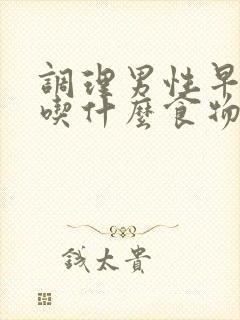 調理男性早
喫什麼食物
錢太貴